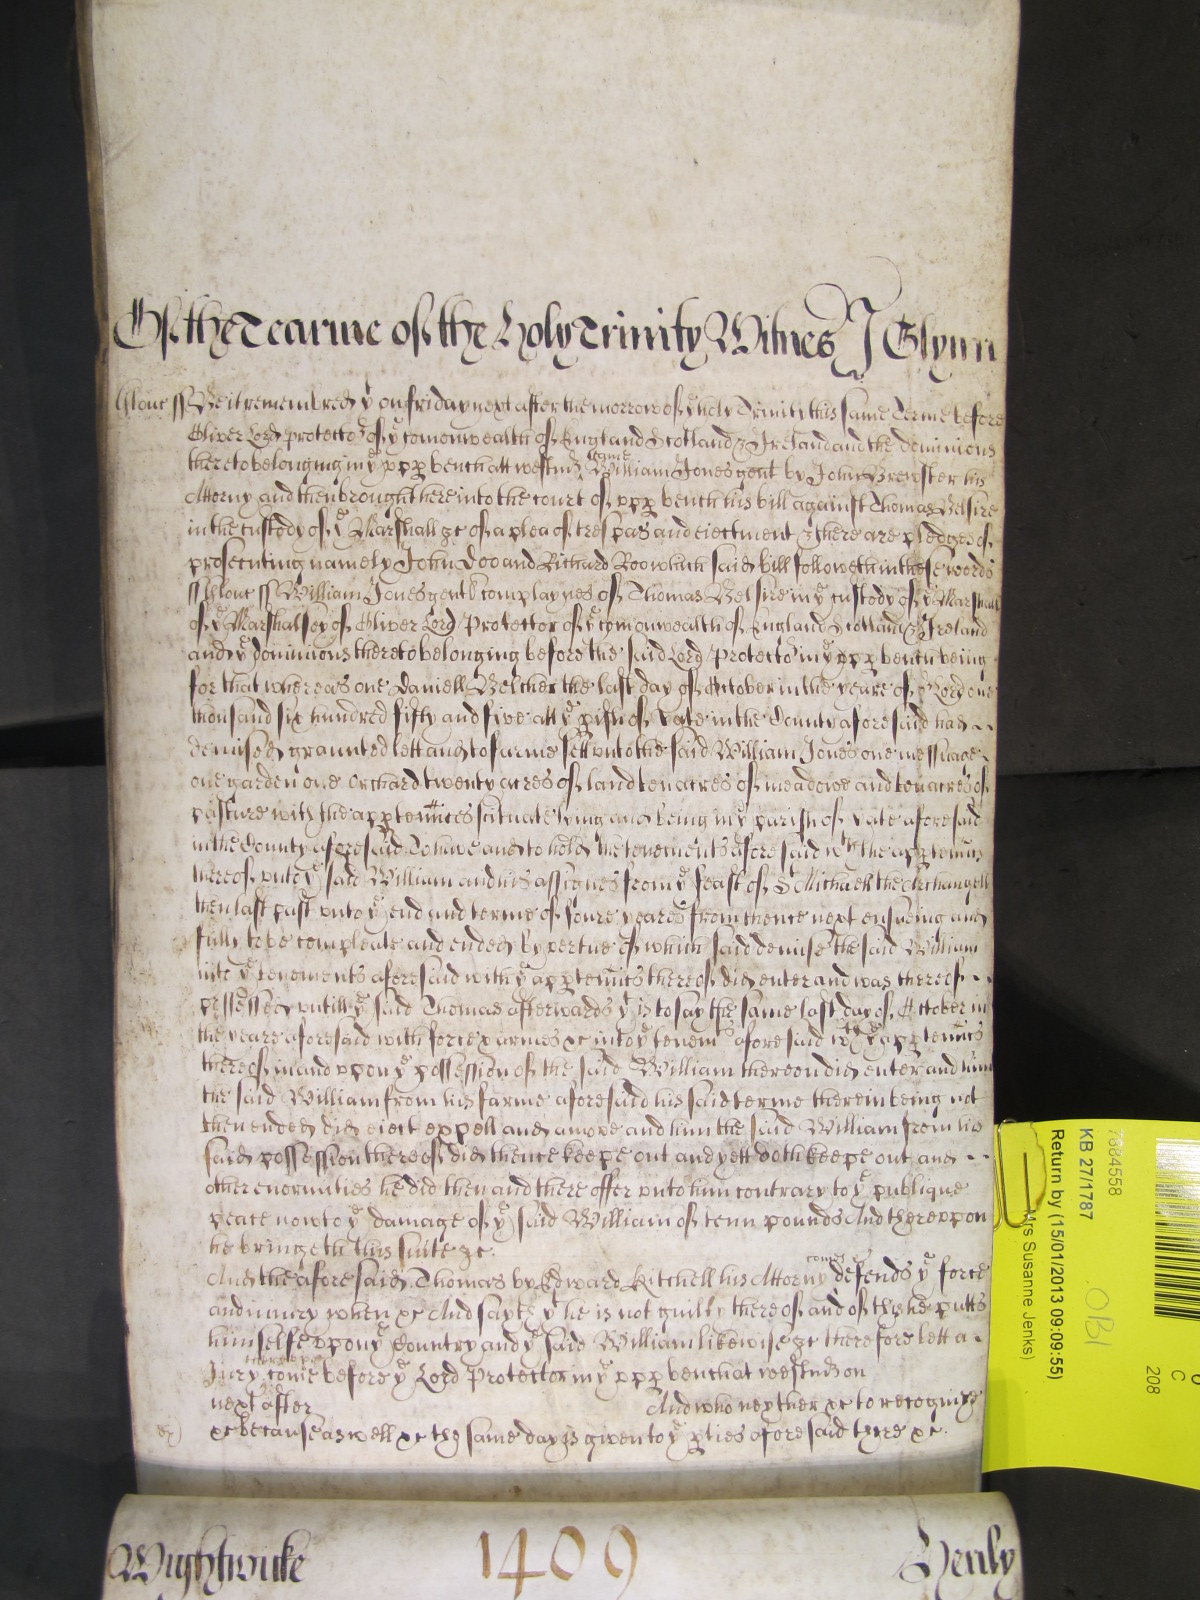 Of the Tearme of the Holy Trinity Witnes J Glynn
Glouc ss Be it remembred yt on friday next after the morrow of ye holy Trinity this same Terme before
Oliver Lord protector of ye comonwealth of England Scotland & Ireland and the dominions
thereto belonging in ye upp bench att westmr came William Jones gent by John Brewster his
Attorny and then brought here into the court of upp bench his bill against Thomas Belsire
in the custody of ye Marshall &c of a plea of trespas and eiectment & there are pledges of
prosecuting namely John Doo and Richard Roo which said bill followeth in these words
ss Glouc ss William Jones gent complaynes of Thomas Belsire in ye custody of ye Marshall
of ye Marshalsey of Oliver Lord Protector of ye comonwealth of England Scotland & Ireland
and ye dominions thereto belonging before the said Lord Protector in ye upp bench being
for that whereas one Daniell Belcher the last day of October in the yeare of or Lord one
thousand six hundred fifty and five att ye pish of Yate in the County aforesaid had
demised graunted lett and to farme sett unto the said William Jones one messuage
one garden one Orchard twenty acres of land ten acres of meadowe and ten acres of
pasture with the apptennces scituate lying and being in ye parish of Yate aforesaid
in the County aforesaid To have and to hold the tenements aforesaid wth the apptennces
thereof unto ye said William and his assignes from ye feast of St Michaell the Archangell
then last past unto ye end and terme of foure yeares from thence next ensueing and
fully to be compleate and ended by vertue of which said demise the said William
into ye tenements aforesaid with ye apptennces thereof did enter and was thereof
possessed untill ye said Thomas afterwards yt is to say the same last day of October in
the yeare aforesaid with force & armes &c into ye tenemts aforesaid wth ye apptennces
thereof in and uppon ye possession of the said William thereon did enter and him
the said William from his farme aforesaid his said terme therein being not
then ended did eiect expell and amove and him the said William from his
said possession thereof did thence keepe out and yett doth keepe out and
other enormities he did then and there offer unto him contrary to ye publique
peace now to ye damage of ye said William of tenn pounds And thereuppon
he bringeth this suite &c.
And the aforesaid Thomas by Edward Kitchell his Attorny comes & defends ye force
and iniury when &c And sayth yt he is not guilty thereof and of this he putts
himselfe uppon ye Country and ye said William likewise &c therefore lett a
Jury thereuppon come before ye Lord Protector in ye upp bench at westmr on
next after And who neyther &c to recognize
&c because aswell &c the same day is given to ye pties aforesaid there &c.
Wightwicke 1409 Henly
7884558
KB 27/1787
Return by (15/01/2013 09:09:55)
Mrs Susanne Jenks)
OBI
C
208